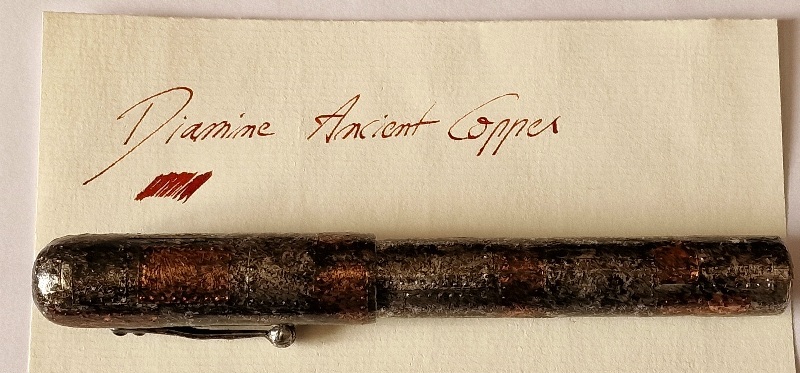 Diamine Ancient Copper